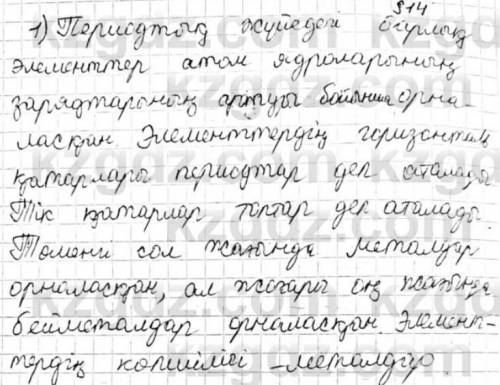 §14
1) Периодтық жүйедегі барлық
элементтер атом ядроларының
зарядтарының артуы бойынша орна-
ласқан. Элементтердің горизонталь
қатарлары периодтар деп аталады
Тік қатарлар топтар деп аталады.
Төменгі сол жағында металдар
орналасқан, ал жоғары оң жағында
бейметалдар орналасқан. Элемент-
тердің көпшілігі - металдар.
kzgdz.com